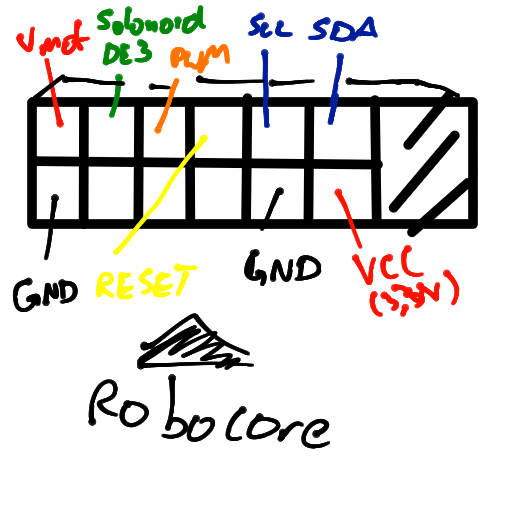 Vmot
Solonoid
DE3
PWM
SCL
SDA
GND
RESET
GND
VCC
(3,3V)
Robocore